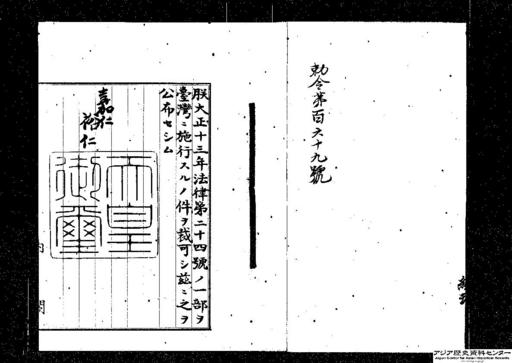 勅令第百六十九號
朕大正十三年法律第二十四號ノ一部ヲ
臺灣ニ施行スルノ件ヲ裁可シ茲ニ之ヲ
公布セシム
嘉仁
裕仁
天皇
御璽
内
閣
アジア歴史資料センター
Japan Center for Asian Historical Records